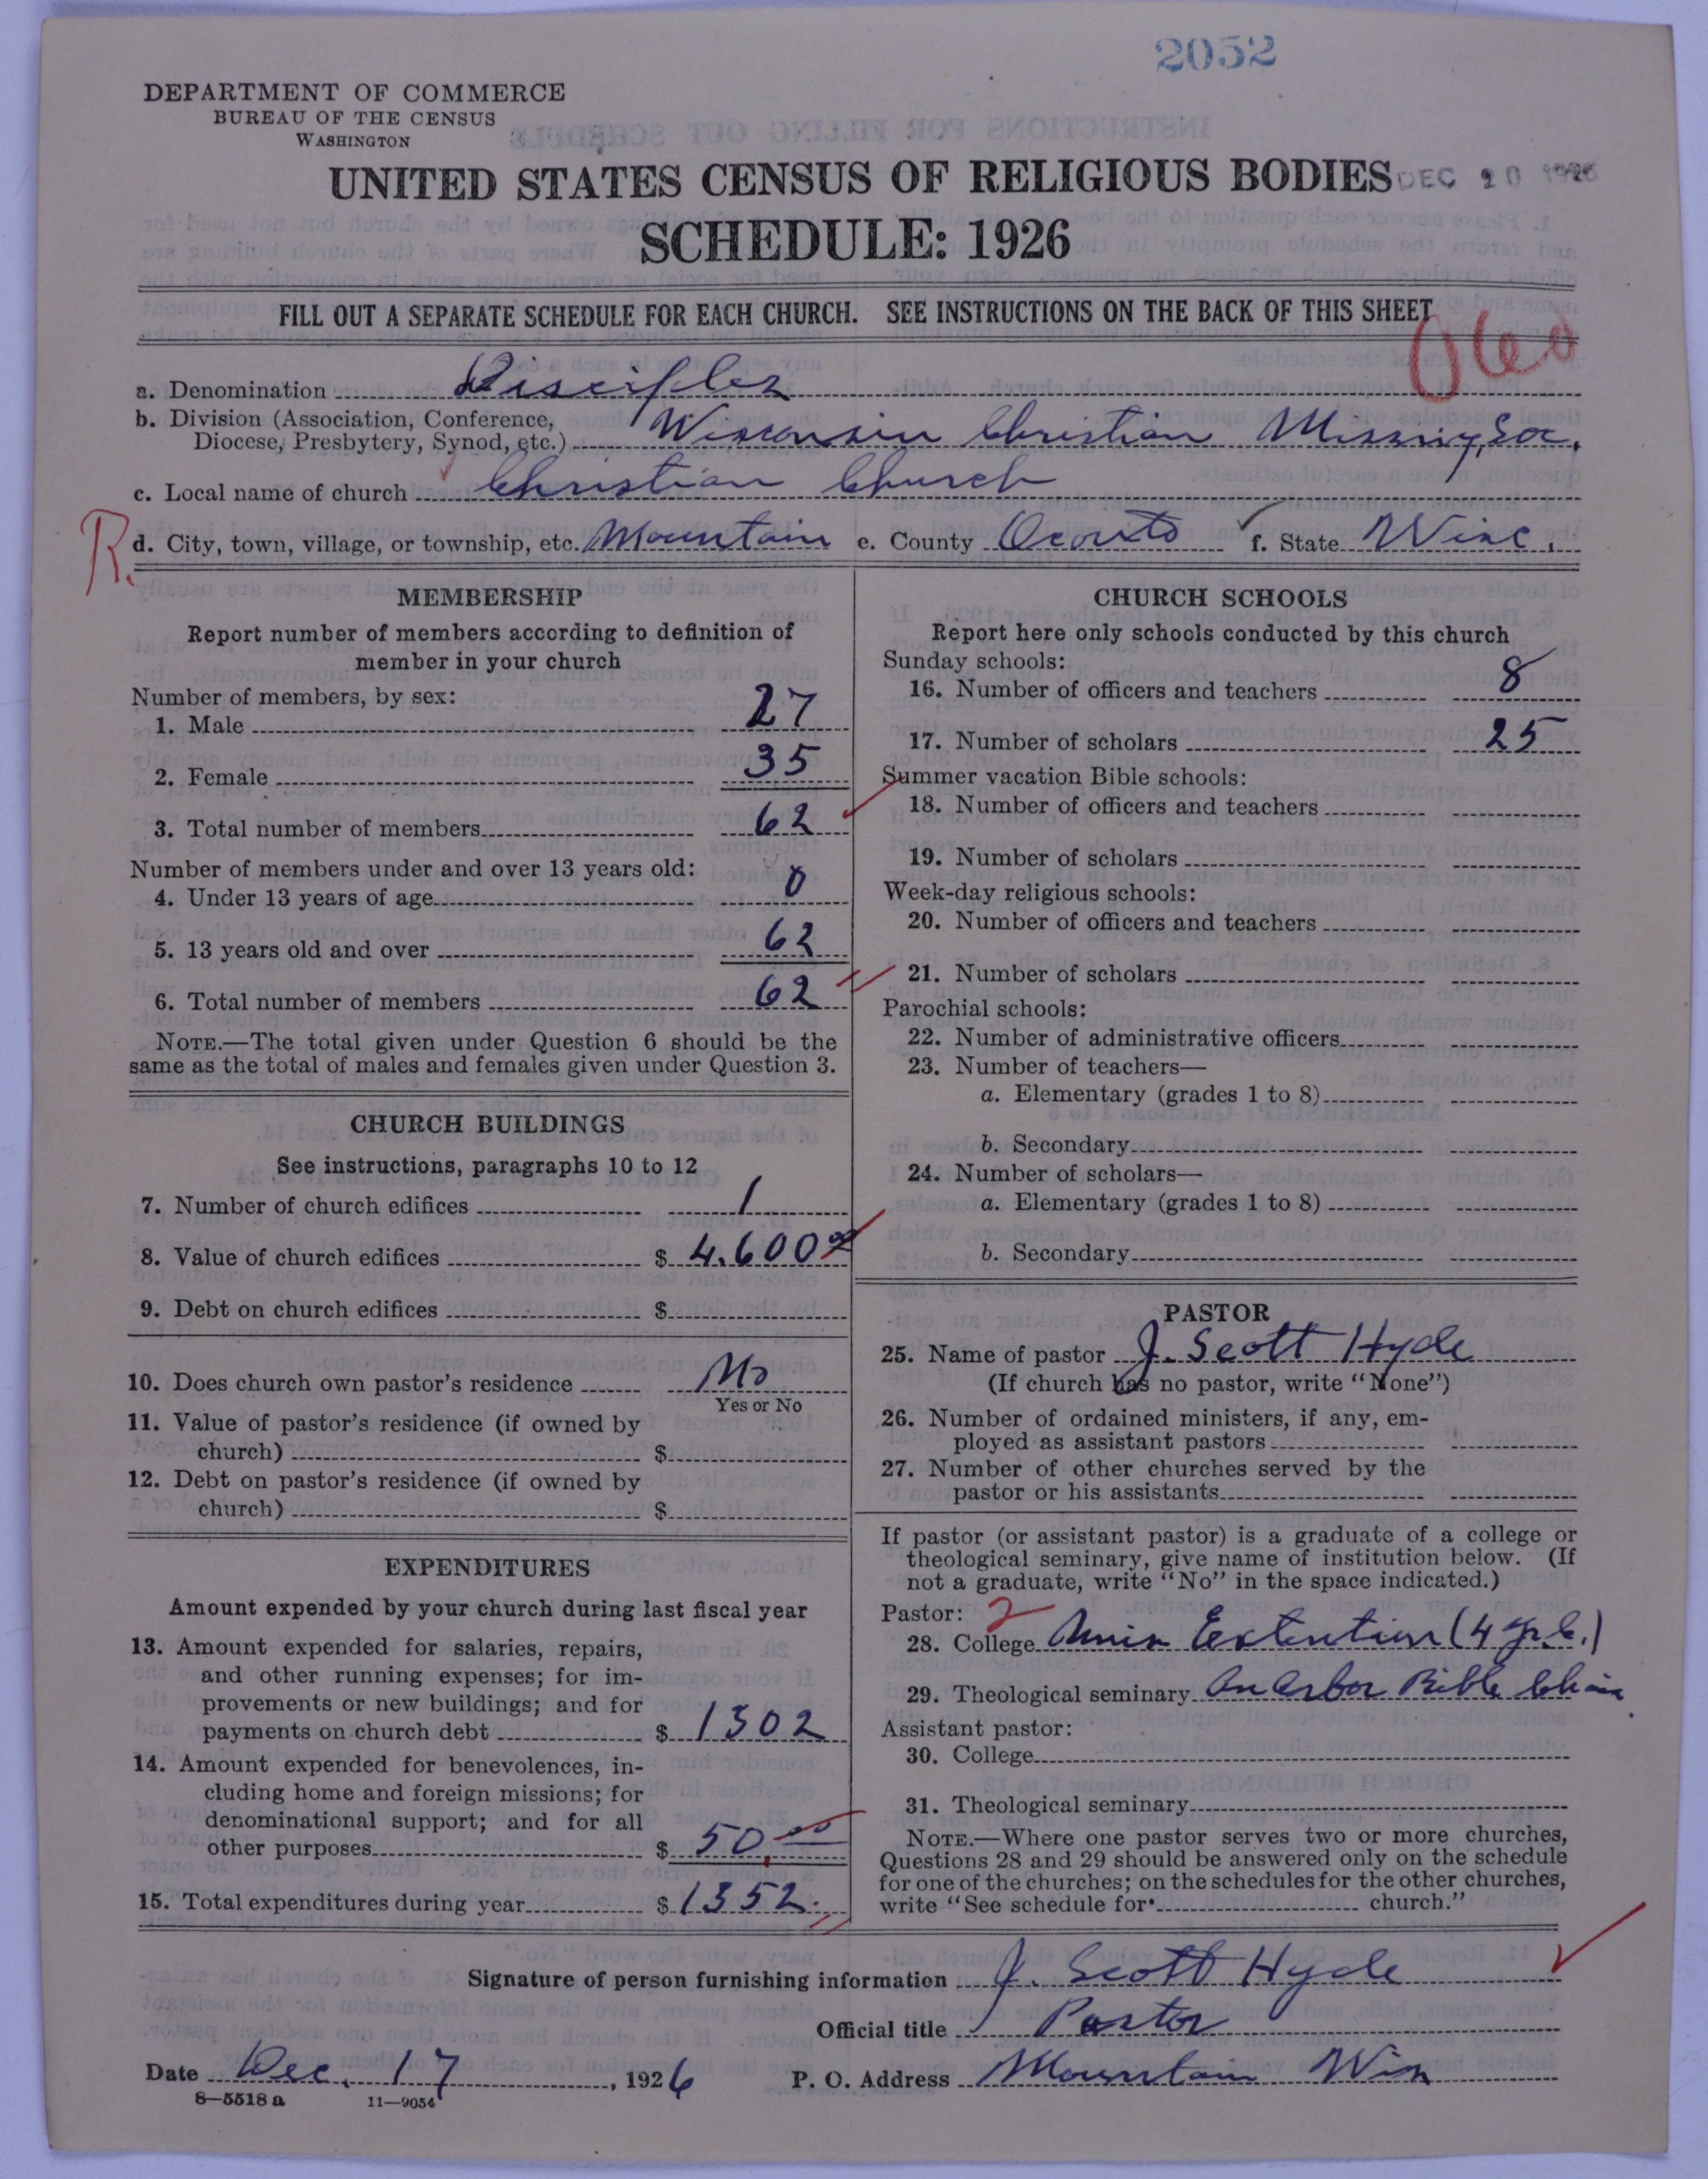 2052
DEPARTMENT OF COMMERCE
BUREAU OF THE CENSUS
WASHINGTON
UNITED STATES CENSUS OF RELIGIOUS BODIES
DEC 20 1926
SCHEDULE: 1926
FILL OUT A SEPARATE SCHEDULE FOR EACH CHURCH. SEE INSTRUCTIONS ON THE BACK OF THIS SHEET
a. Denomination Disciples
b. Division (Association, Conference,
Diocese, Presbytery, Synod, etc.) Wisconsin Christian Missny, Soc.
c. Local name of church Christian Church
R.
d. City, town, village, or township, etc. Mountain e. County Oconto f. State Wisc.
MEMBERSHIP
Report number of members according to definition of
member in your church
Number of members, by sex:
1. Male 27
2. Female 35
3. Total number of members 62
Number of members under and over 13 years old:
4. Under 13 years of age 0
5. 13 years old and over 62
6. Total number of members 62
NOTE.—The total given under Question 6 should be the
same as the total of males and females given under Question 3.
CHURCH BUILDINGS
See instructions, paragraphs 10 to 12
7. Number of church edifices 1
8. Value of church edifices $ 4,600 00
9. Debt on church edifices $
10. Does church own pastor's residence No
Yes or No
11. Value of pastor's residence (if owned by
church) $
12. Debt on pastor's residence (if owned by
church) $
EXPENDITURES
Amount expended by your church during last fiscal year
13. Amount expended for salaries, repairs,
and other running expenses; for im-
provements or new buildings; and for
payments on church debt $ 1302
14. Amount expended for benevolences, in-
cluding home and foreign missions; for
denominational support; and for all
other purposes $ 50.00
15. Total expenditures during year $ 1352.
CHURCH SCHOOLS
Report here only schools conducted by this church
Sunday schools:
16. Number of officers and teachers 8
17. Number of scholars 25
Summer vacation Bible schools:
18. Number of officers and teachers
19. Number of scholars
Week-day religious schools:
20. Number of officers and teachers
21. Number of scholars
Parochial schools:
22. Number of administrative officers
23. Number of teachers—
a. Elementary (grades 1 to 8)
b. Secondary
24. Number of scholars—
a. Elementary (grades 1 to 8)
b. Secondary
PASTOR
25. Name of pastor J. Scott Hyde
(If church has no pastor, write "None")
26. Number of ordained ministers, if any, em-
ployed as assistant pastors
27. Number of other churches served by the
pastor or his assistants
If pastor (or assistant pastor) is a graduate of a college or
theological seminary, give name of institution below. (If
not a graduate, write "No" in the space indicated.)
Pastor: 2
28. College Univ Extention (4
29. Theological seminary An Arbor Bible Chair
Assistant pastor:
30. College
31. Theological seminary
NOTE.—Where one pastor serves two or more churches,
Questions 28 and 29 should be answered only on the schedule
for one of the churches; on the schedules for the other churches,
write "See schedule for church."
Signature of person furnishing information J. Scott Hyde
Official title Pastor
Date Dec. 17, 1926 P. O. Address Mountain Wis
8—5518 a 11—9054